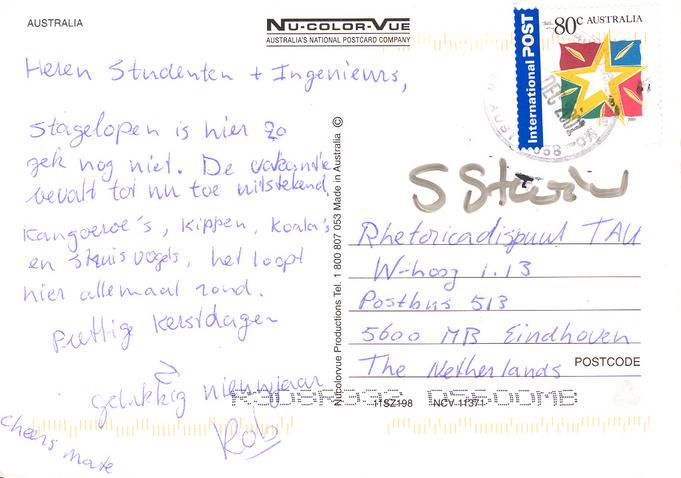 AUSTRALIA
NU-COLOR-VUE
AUSTRALIA'S NATIONAL POSTCARD COMPANY
International POST
80c AUSTRALIA
DEC 200
Heren Studenten + Ingenieurs,
Stagelopen is hier zo
gek nog niet. De vakantie
bevalt tot nu toe uitstekend.
Kangoeroe's, kippen, koala's
en struisvogels, het loopt
hier allemaal rond.
Prettige kerstdagen
&
gelukkig nieuwjaar
Rob
Cheers Mate
Nucolorvue Productions Tel. 1 800 807 053 Made in Australia ©
Rhetoricadispuut TAU
W-hoog 1.13
Postbus 513
5600 MB Eindhoven
The Netherlands
POSTCODE
11SZ198 NCV-11371